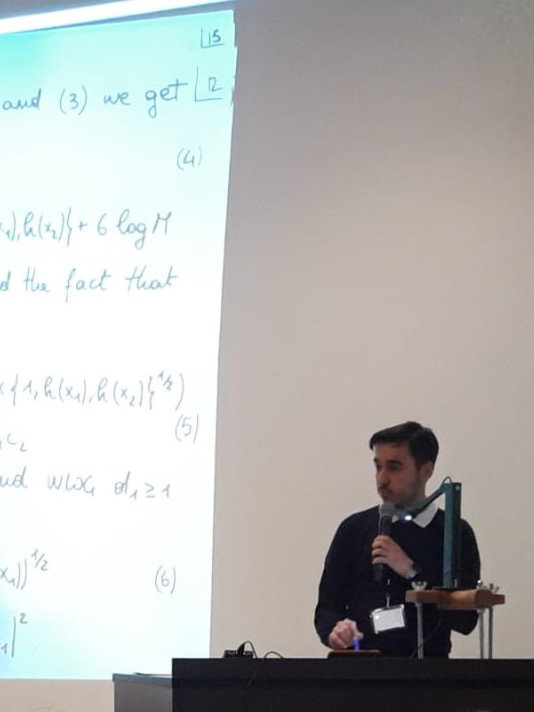 15
and (3) we get 12
(4)
x₁),h(x₂)}+ 6 log M
d the fact that
{1,h(x₁),h(x₂)}^1/2)
(5)
c₂
and WLOG d₁ ≥ 1
x₁))^1/2
(6)
1|²